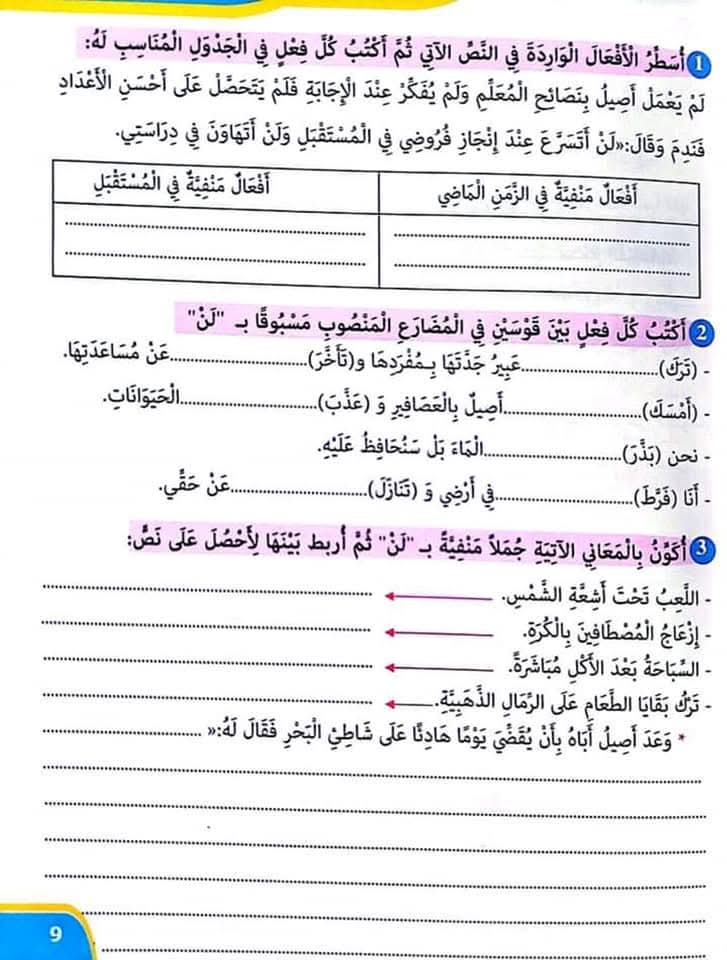 1 أُسَطِّرُ الْأَفْعَالَ الْوَارِدَةَ فِي النَّصِّ الآتِي ثُمَّ أَكْتُبُ كُلَّ فِعْلٍ فِي الْجَدْوَلِ الْمُنَاسِبِ لَهُ:
لَمْ يَعْمَلْ أَصِيلُ بِنَصَائِحِ الْمُعَلِّمِ وَلَمْ يُفَكِّرْ عِنْدَ الْإِجَابَةِ فَلَمْ يَتَحَصَّلْ عَلَى أَحْسَنِ الْأَعْدَادِ
فَنَدِمَ وَقَالَ:«لَنْ أَتَسَرَّعَ عِنْدَ إِنْجَازِ فُرُوضِي فِي الْمُسْتَقْبَلِ وَلَنْ أَتَهَاوَنَ فِي دِرَاسَتِي.
أَفْعَالٌ مَنْفِيَّةٌ فِي الزَّمَنِ الْمَاضِي
أَفْعَالٌ مَنْفِيَّةٌ فِي الْمُسْتَقْبَلِ
2 أَكْتُبُ كُلَّ فِعْلٍ بَيْنَ قَوْسَيْنِ فِي الْمُضَارَعِ الْمَنْصُوبِ مَسْبُوقًا بـ "لَنْ"
- (تَرَكَ)..............................عَبِيرُ جَدَّتَهَا بِـمُفْرَدِهَا و(تَأَخَّرَ)..............................عَنْ مُسَاعَدَتِهَا.
- (أَمْسَكَ)..............................أَصِيلٌ بِالْعَصَافِيرِ وَ (عَذَّبَ)..............................الْحَيَوَانَاتِ.
- نحن (بَذَّرَ)..............................الْمَاءَ بَلْ سَنُحَافِظُ عَلَيْهِ.
- أَنَا (فَرَّطَ)..............................فِي أَرْضِي وَ (تَنَازَلَ)..............................عَنْ حَقِّي.
3 أُكَوِّنُ بِالْمَعَانِي الآتِيَةِ جُمَلاً مَنْفِيَّةً بـ "لَنْ" ثُمَّ أُربط بَيْنَهَا لِأَحْصُلَ عَلَى نَصٍّ:
- اللَّعِبُ تَحْتَ أَشِعَّةِ الشَّمْسِ.
- إِزْعَاجُ الْمُصْطَافِينَ بِالْكُرَةِ.
- السِّبَاحَةُ بَعْدَ الْأَكْلِ مُبَاشَرَةً.
- تَرْكُ بَقَايَا الطَّعَامِ عَلَى الرِّمَالِ الذَّهَبِيَّةِ.
* وَعَدَ أَصِيلُ أَبَاهُ بِأَنْ يُقَضِّيَ يَوْمًا هَادِئًا عَلَى شَاطِئِ الْبَحْرِ فَقَالَ لَهُ:« ..............................
9